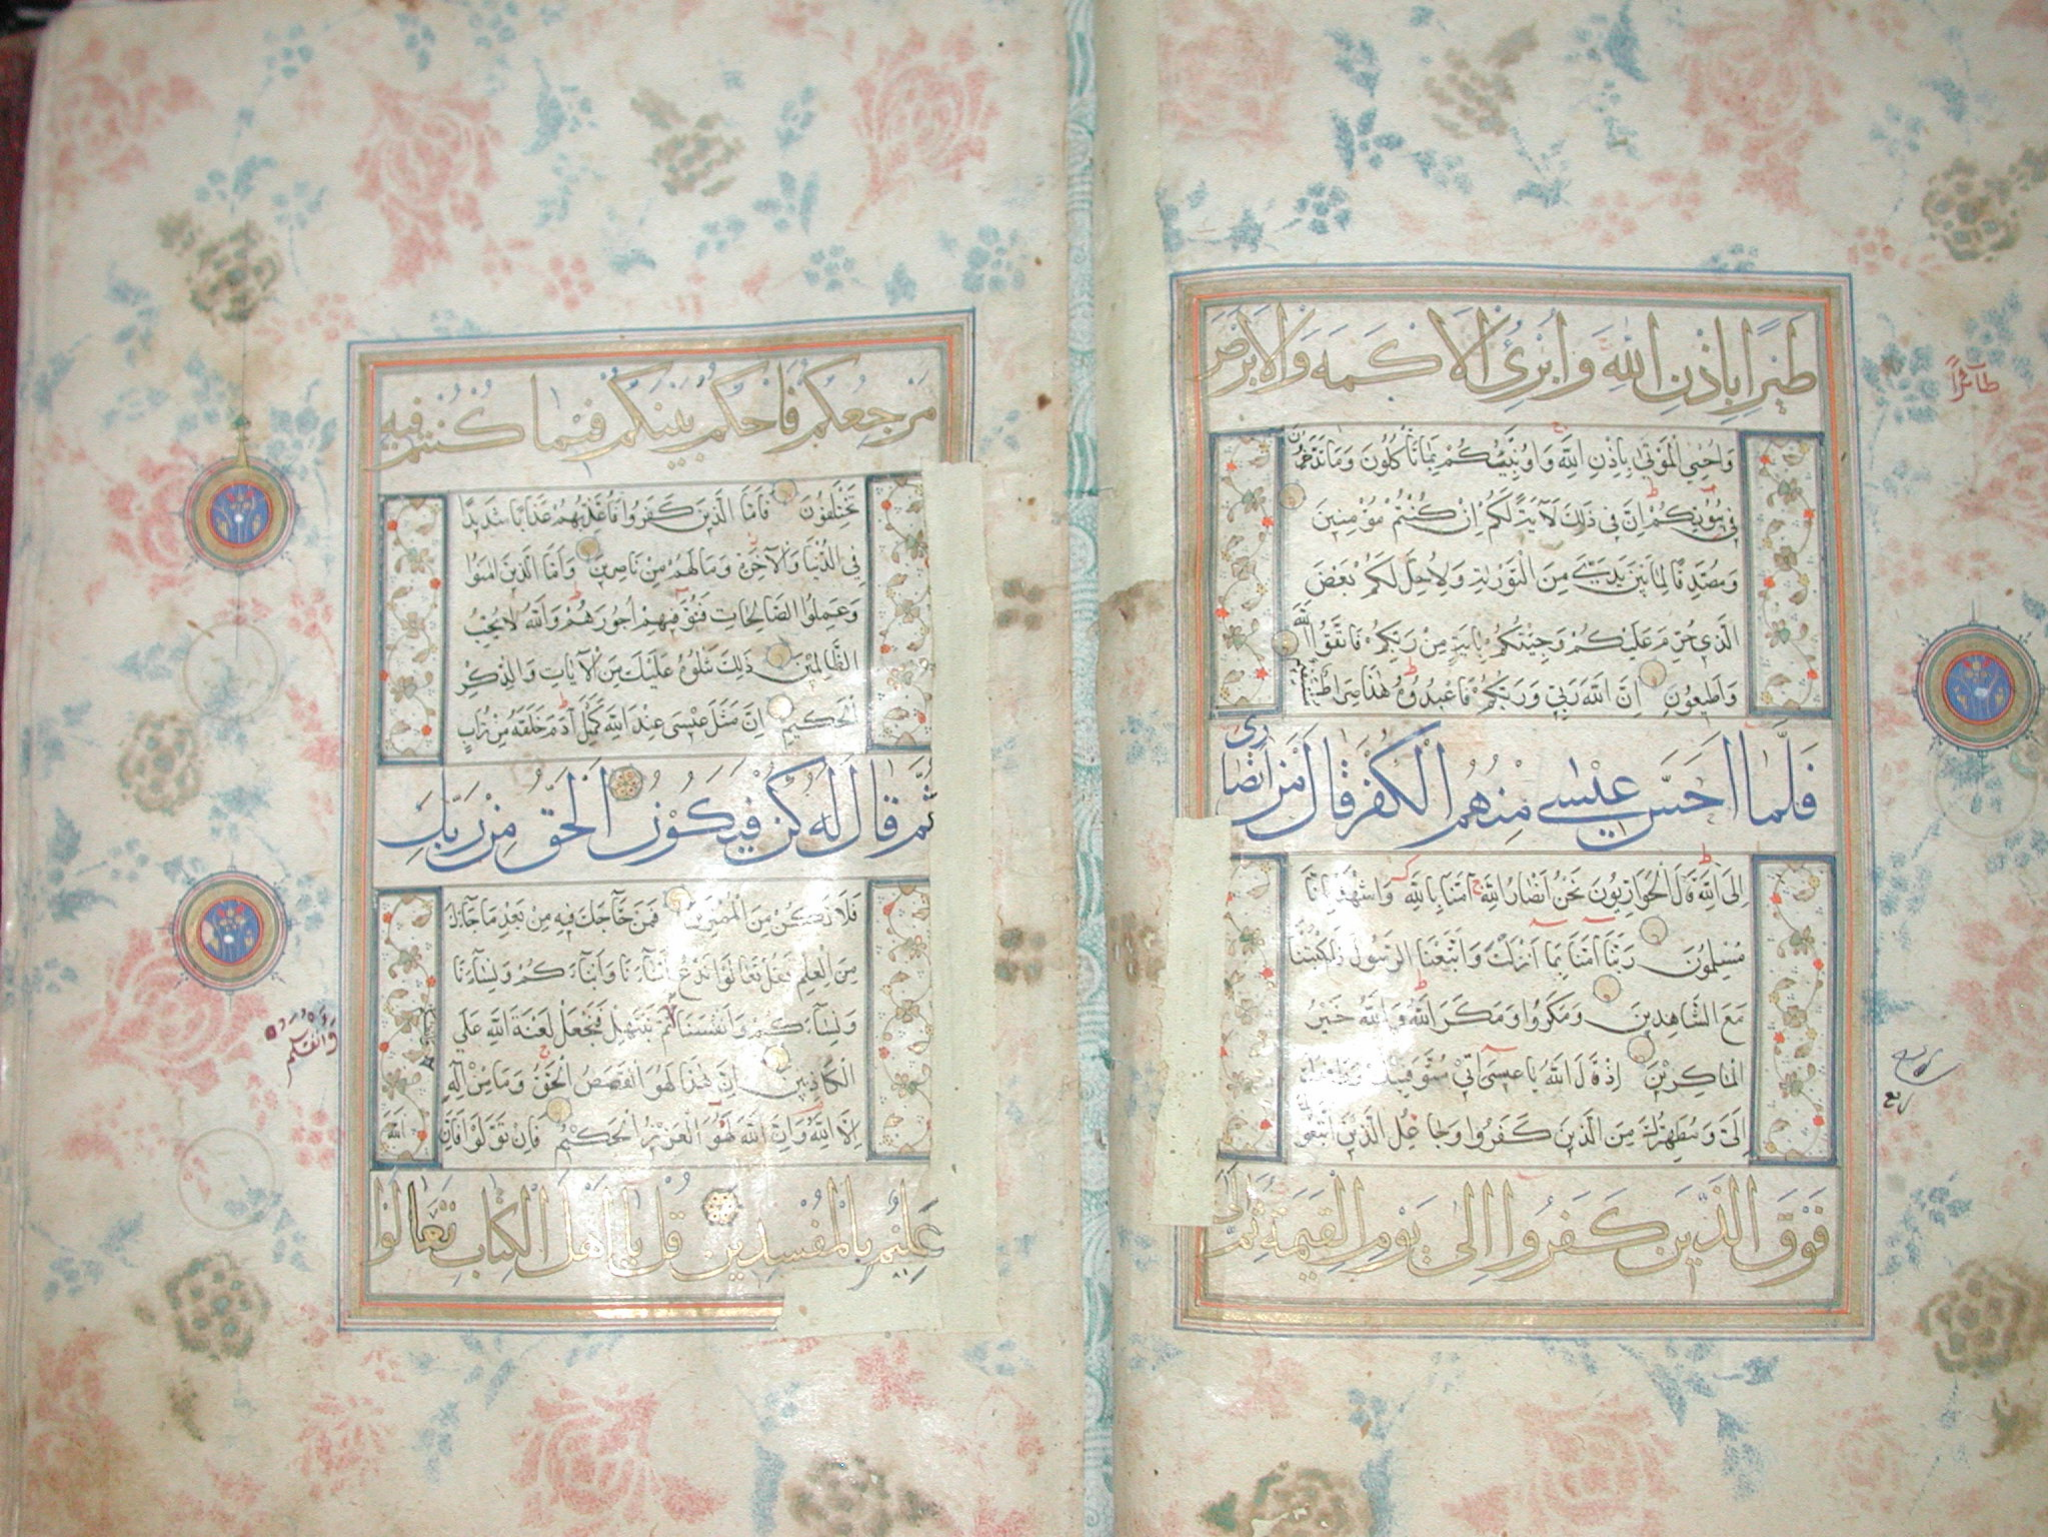 طَيْرًا بِاِذْنِ اللّٰهِ وَاُبْرِئُ الْاَكْمَهَ وَالْاَبْرَصَ
وَاُحْيِي الْمَوْتٰى بِاِذْنِ اللّٰهِ وَاُنَبِّئُكُمْ بِمَا تَأْكُلُونَ وَمَا تَدَّخِرُونَ
فِي بُيُوتِكُمْ اِنَّ فِي ذٰلِكَ لَاٰيَةً لَكُمْ اِنْ كُنْتُمْ مُؤْمِنِينَ
وَمُصَدِّقًا لِمَا بَيْنَ يَدَيَّ مِنَ التَّوْرٰيةِ وَلِاُحِلَّ لَكُمْ بَعْضَ
الَّذِي حُرِّمَ عَلَيْكُمْ وَجِئْتُكُمْ بِاٰيَةٍ مِنْ رَبِّكُمْ فَاتَّقُوا اللّٰهَ
وَاَطِيعُونِ اِنَّ اللّٰهَ رَبِّي وَرَبُّكُمْ فَاعْبُدُوهُ هٰذَا صِرَاطٌ مُسْتَقِيمٌ
فَلَمَّا اَحَسَّ عِيسٰى مِنْهُمُ الْكُفْرَ قَالَ مَنْ اَنْصَارِي
اِلَى اللّٰهِ قَالَ الْحَوَارِيُّونَ نَحْنُ اَنْصَارُ اللّٰهِ اٰمَنَّا بِاللّٰهِ وَاشْهَدْ بِاَنَّا
مُسْلِمُونَ رَبَّنَا اٰمَنَّا بِمَا اَنْزَلْتَ وَاتَّبَعْنَا الرَّسُولَ فَاكْتُبْنَا
مَعَ الشَّاهِدِينَ وَمَكَرُوا وَمَكَرَ اللّٰهُ وَاللّٰهُ خَيْرُ
الْمَاكِرِينَ اِذْ قَالَ اللّٰهُ يَا عِيسٰى اِنِّي مُتَوَفِّيكَ وَرَافِعُكَ
اِلَيَّ وَمُطَهِّرُكَ مِنَ الَّذِينَ كَفَرُوا وَجَاعِلُ الَّذِينَ اتَّبَعُوكَ
فَوْقَ الَّذِينَ كَفَرُوا اِلٰى يَوْمِ الْقِيٰمَةِ ثُمَّ اِلَيَّ
طَآئِرًا
ربع
مَرْجِعُكُمْ فَاَحْكُمُ بَيْنَكُمْ فِيمَا كُنْتُمْ فِيهِ
تَخْتَلِفُونَ فَاَمَّا الَّذِينَ كَفَرُوا فَاُعَذِّبُهُمْ عَذَابًا شَدِيدًا
فِي الدُّنْيَا وَالْاٰخِرَةِ وَمَا لَهُمْ مِنْ نَاصِرِينَ وَاَمَّا الَّذِينَ اٰمَنُوا
وَعَمِلُوا الصَّالِحَاتِ فَنُوَفِّيهِمْ اُجُورَهُمْ وَاللّٰهُ لَا يُحِبُّ
الظَّالِمِينَ ذٰلِكَ نَتْلُوهُ عَلَيْكَ مِنَ الْاٰيَاتِ وَالذِّكْرِ
الْحَكِيمِ اِنَّ مَثَلَ عِيسٰى عِنْدَ اللّٰهِ كَمَثَلِ اٰدَمَ خَلَقَهُ مِنْ تُرَابٍ
ثُمَّ قَالَ لَهُ كُنْ فَيَكُونُ اَلْحَقُّ مِنْ رَبِّكَ
فَلَا تَكُنْ مِنَ الْمُمْتَرِينَ فَمَنْ حَآجَّكَ فِيهِ مِنْ بَعْدِ مَا جَآءَكَ
مِنَ الْعِلْمِ فَقُلْ تَعَالَوْا نَدْعُ اَبْنَآءَنَا وَاَبْنَآءَكُمْ وَنِسَآءَنَا
وَنِسَآءَكُمْ وَاَنْفُسَنَا وَاَنْفُسَكُمْ ثُمَّ نَبْتَهِلْ فَنَجْعَلْ لَعْنَةَ اللّٰهِ عَلَى
الْكَاذِبِينَ اِنَّ هٰذَا لَهُوَ الْقَصَصُ الْحَقُّ وَمَا مِنْ اِلٰهٍ
اِلَّا اللّٰهُ وَاِنَّ اللّٰهَ لَهُوَ الْعَزِيزُ الْحَكِيمُ فَاِنْ تَوَلَّوْا فَاِنَّ اللّٰهَ
عَلِيمٌ بِالْمُفْسِدِينَ قُلْ يَا اَهْلَ الْكِتَابِ تَعَالَوْا